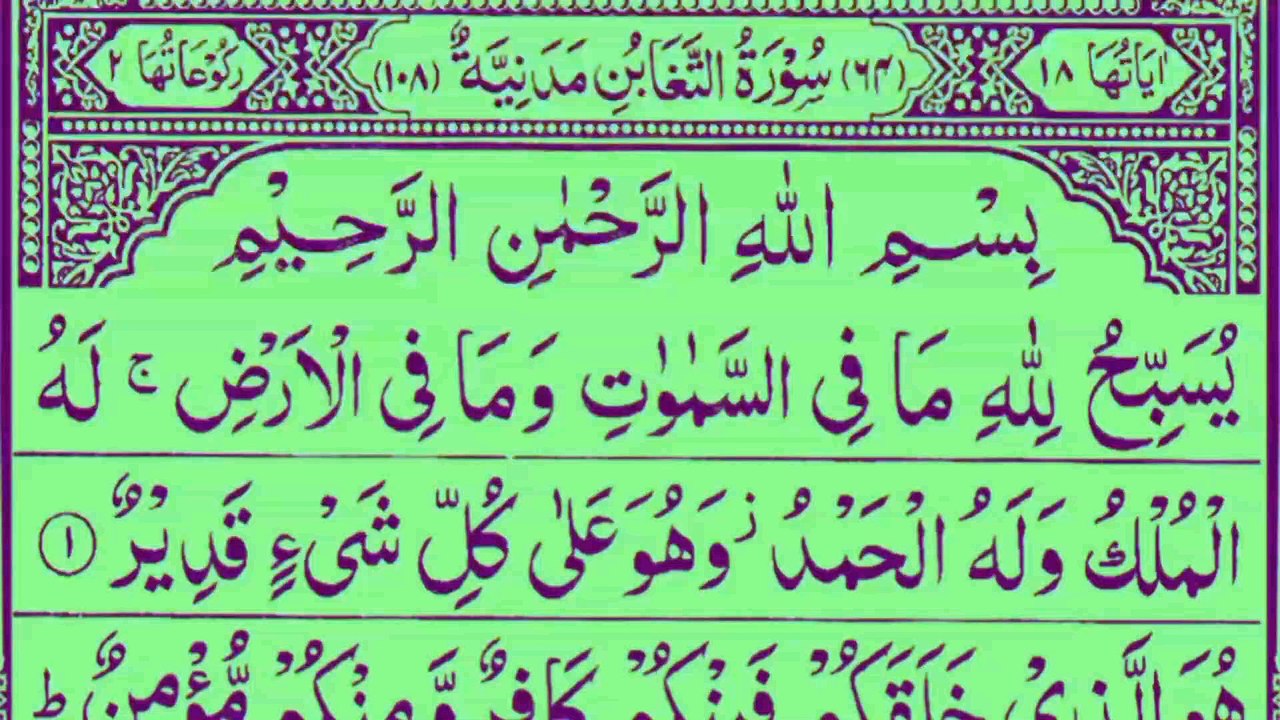 اٰيَاتُهَا ١٨ (٦٤) سُوْرَةُ التَّغَابُنِ مَدَنِيَّةٌ (١٠٨) رُكُوْعَاتُهَا ٢
بِسْمِ اللّٰهِ الرَّحْمٰنِ الرَّحِيْمِ
يُسَبِّحُ لِلّٰهِ مَا فِى السَّمٰوٰتِ وَمَا فِى الْاَرْضِ ۚ لَهُ
الْمُلْكُ وَلَهُ الْحَمْدُ ز وَهُوَ عَلٰى كُلِّ شَىْءٍ قَدِيْرٌ ۝١
هُوَ الَّذِىْ خَلَقَكُمْ فَمِنْكُمْ كَافِرٌ وَّمِنْكُمْ مُّؤْمِنٌ ط